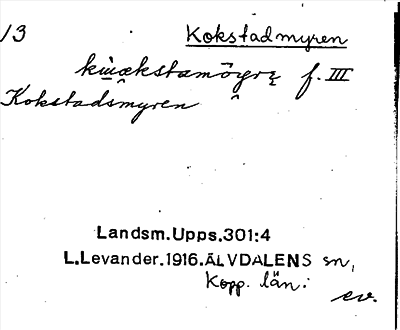 13 Kokstadmyren
kẁækstamöyrę f. III
Kokstadsmyren
Landsm.Upps.301:4
L.Levander.1916.ÄLVDALENS sn,
Kopp. län.
ev.